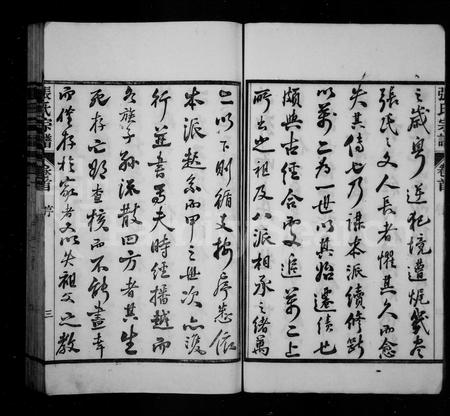 之歲粵逆犯境遭燬幾盡
張氏之文人長者懼其久而愈
失其傳也乃謀本派續修斷
以萬二為一世以其始遷績也
頗與古經合更追萬二上
所出之祖及八派相承之緒萬
二以下則循支按房悉依
本派趙系而甲之世次亦
行並書焉夫時經播越而
各族子孫流散四方者其生
死存亡難查核而不能盡幸
而僅存於家者又以失祖父之教
張氏宗譜 卷首 序 三
張氏宗譜 卷首